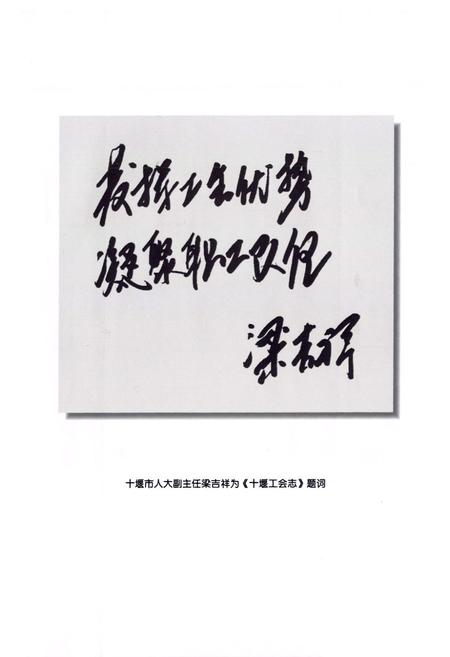 发挥工会优势
凝聚职工队伍
梁吉祥
十堰市人大副主任梁吉祥为《十堰工会志》题词